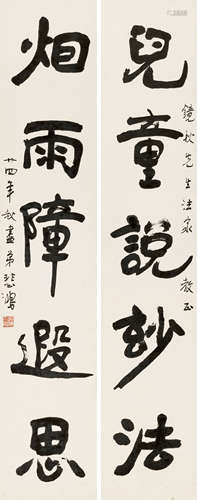 兒童說妙法
鏡秋先生法家教正
烟雨障遐思
廿四年秋盡弟悲鴻